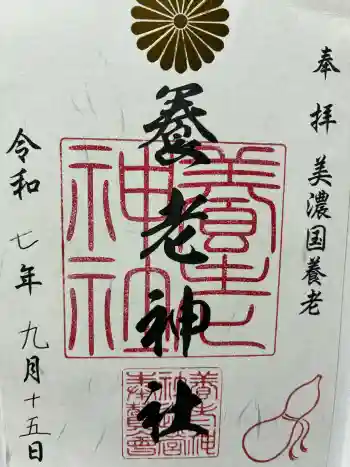 奉拝 美濃国養老
養老神社
養老神社
養老神社奉賛會
令和七年九月十五日